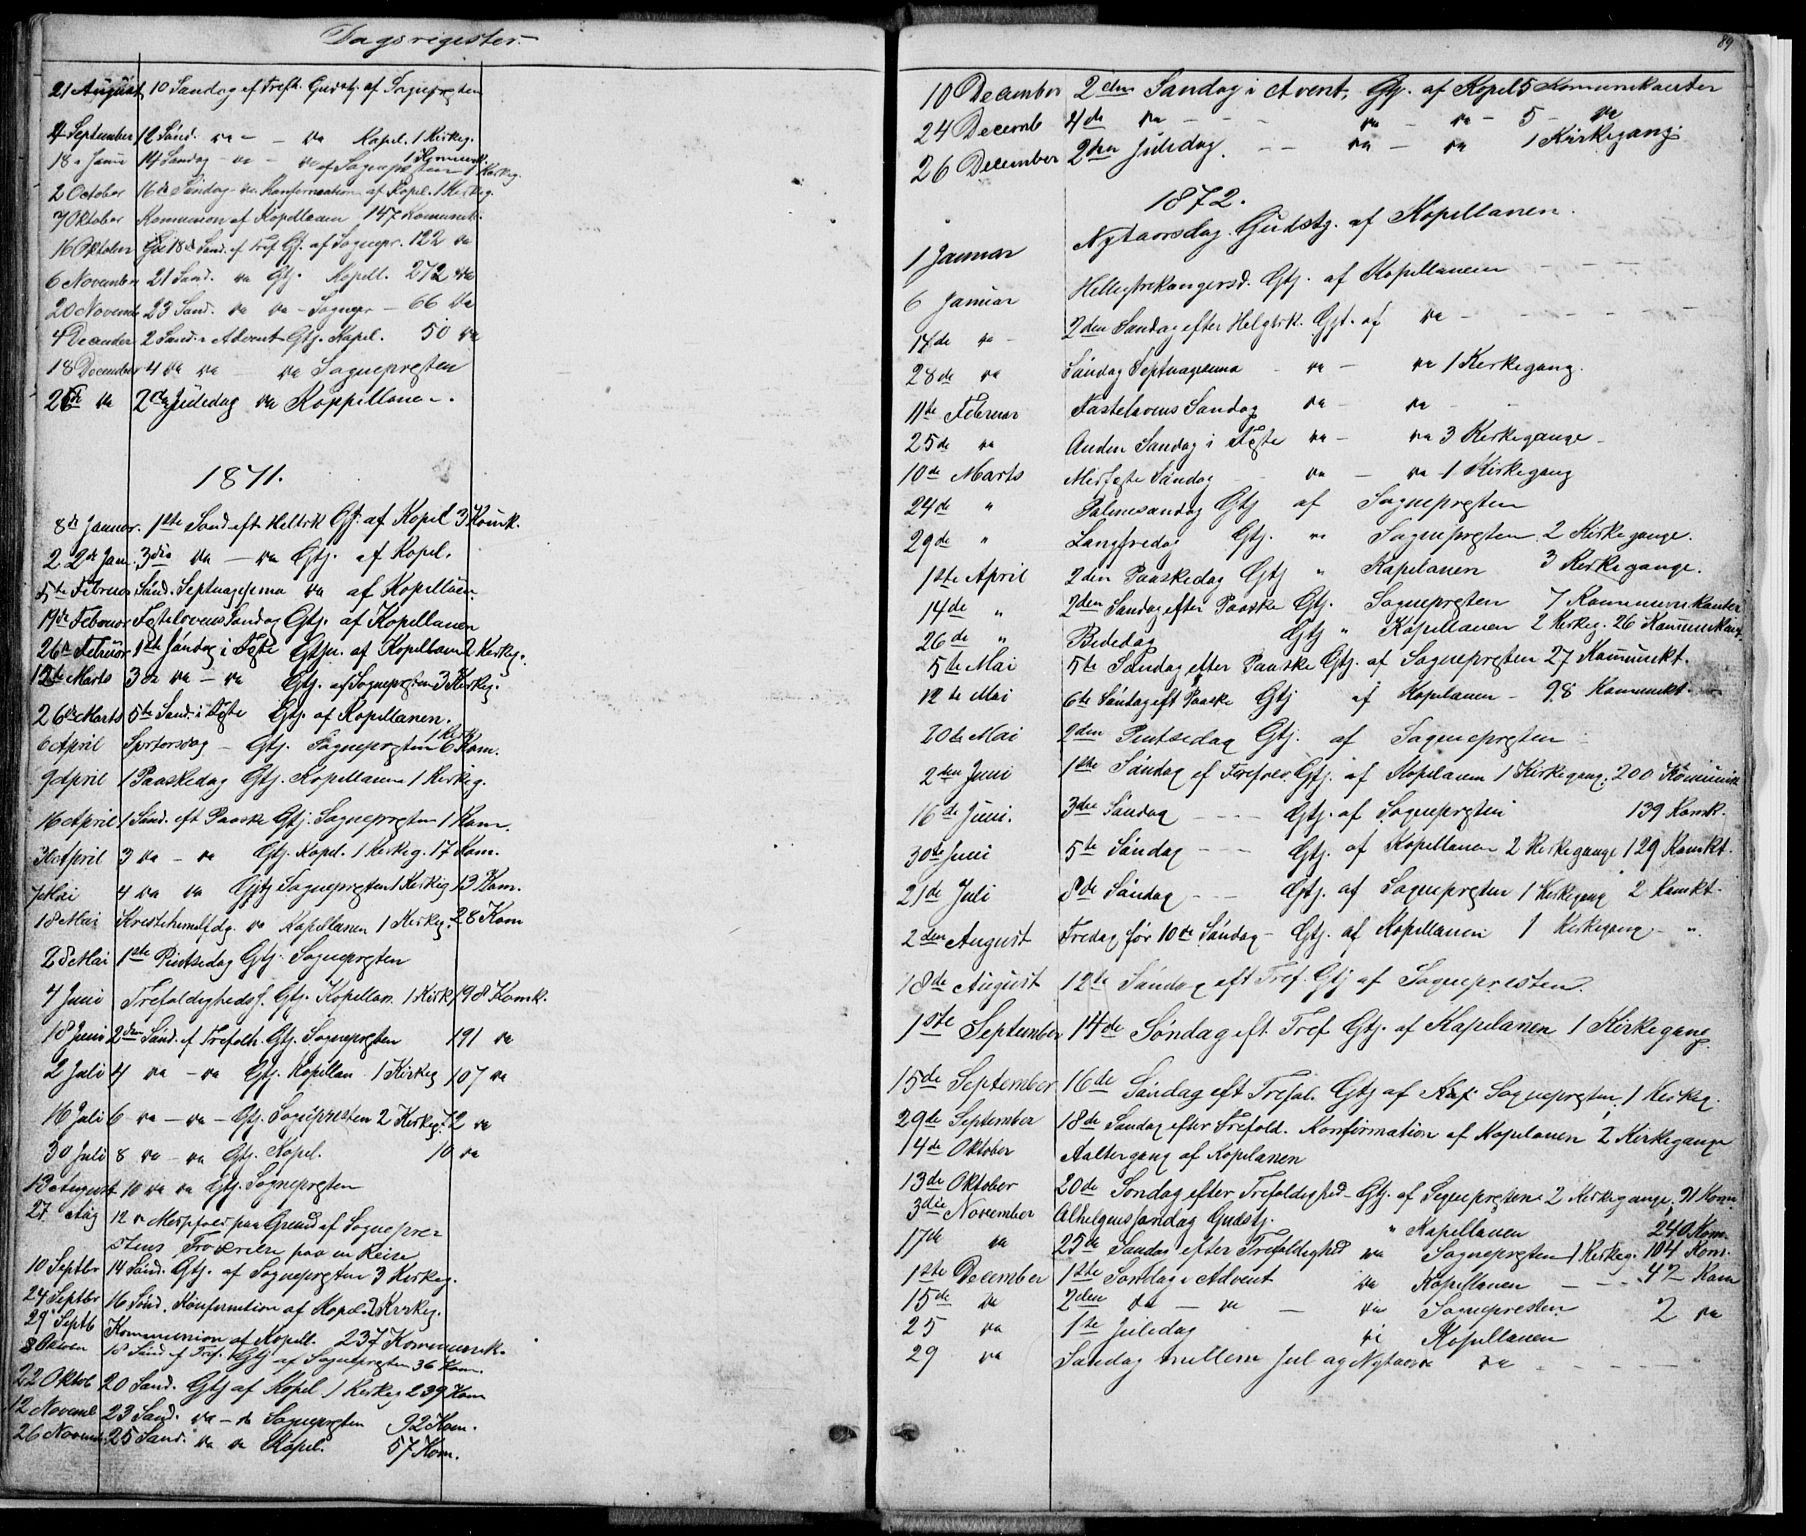 Dagsregister.
21 August 10 Søndag ef Trefh. Gudstj. af Sognepresten
4 September 12 Sønd. da - da Kapel. 1 Kirkeg.
18 14 Søndag - da - da af Sognepresten 1 Kirkeg.
2 October 16de Søndag - da Konfirmation af Kapel. 1 Kirkeg.
7 Oktober Komunion af Kapellanen 147 Komunik.
16 Oktober 18de Sønd. ef Tref. Gtj. af Sognepr. 122 da
6 November 21 Sønd. da Gtj. Kapell. 272 da
20 Novemb 23 Sønd. da da - Sognepr - 66 da
4 December 2 Sønd. i Advent Gtj. Kapel. 50 da
18 December 4 da da - da Sognepresten
26de da 2den Juledag da Koppillane -.
1871.
8de Januar. 1ste Sønd. eft Heltrk Gtj. af Kapel 3 Komk.
22de Jan. 3die da - da Gtj. af Kapel.
5te Februar Sønd. Septuagesema da af Kapellan
19de Februar Festelovens Søndag Gtj. af Kapellanen
26de Februar 1ste Søndag i Feste Gtje. af Kapellanen 2 Kirkeg.
12te Marts 3de da - da Gtj. af Sognepresten 3 Kirkeg.
26de Marts 5te Sønd. i Feste Gtj. af Kapellanen.
6 April Sjertorsdag - Gtj. Sognepresten 6 Kom.
9 April 1 Paaskedag Gtj. Kapellanen 1 Kirkeg.
16 April 1 Sønd. eft Paaske Gtj. Sognepresten 1 Kom.
30 April 3 da - da Gtj. Kapel. 1 Kirkeg. 17 Kom.
7 Mai 4 da da Gtj Sognepresten 1 Kirkeg 13 Kom.
18 Mai Kristihimelfdg. da Kapellanen 1 Kirkeg. 28 Kom
28 Mai 1ste Pintsedag Gtj. Sognepresten
4 Juni Trefoldighedsf. Gtj. Kapellan. 1 Kirk. 198 Komk.
18 Juni 2den Sønd. ef Trefoldh. Gtj. Sognepresten 191 da
2 Juli 4 da - da Gtj. Kapellan 1 Kirkeg 107 da
16 Juli 6 da - da - Gtj. Sognepresten 2 Kirkeg. 72 da
30 Juli 8 da - da Gtj. Kapel. 10 da
13 August 10 da da Gtj. Sognepresten
27 Aug 12 da Messefald paa Grund af Sognepre-
stens Fraværelse paa en Reise
10 Septbr 14 Sønd. Gtj. af Sognepresten 3 Kirkeg.
24 Septbr 16 Sønd. Konfirmation af Kapel. 2 Kirkeg.
29 Septb Kommunion af Kapell. 237 Kommunik.
8 Oktoer 18 Sønd. ef Tref. Gtj af Sognepresten 36 Kom.
22 Oktob 20 Sønd. Gtj af Kapel 1 Kirkeg 239 Kom
12 Novemb 23 Sønd. da - da Sognepresten 92 Kom.
26 Novemb. 25 Sønd. da da Kapel. 57 Kom.
89
10 December 2den Søndag i Advent, Gtj. af Kapel 5 Komunikanter
24 Decemb 4de da - - - da - da - 5 - da
26 December 2den Juledag. - - da - da 1 Kirkegang.
1872.
1 Januar Nytaarsdag. Gudstj. af Kapellanen.
6 Januar Helligtrekongersd. Gtj. af Kapellanen
14de da - 2den Søndag efter Helgtrk. Gtj. af da -
28de da Søndag Septuagesema - da - da 1 Kirkegang.
11te Februar Fastelavens Søndag da - da -
25de da Anden Søndag i Feste da - da 3 Kirkegange -
10de Marts Midfeste Søndag da - da 1 Kirkegang
24de " Palmesøndag Gtj af Sognepresten
29de " Langfredag Gtj. " Sognepresten 2 Kirkegange.
1ste April 2den Paaskedag Gtj " Kapelanen 3 Kirkegange.
14de " 2den Søndag efter Paaske Gtj. Sognepresten 7 Kommunikanter
26de " Bededag Gtj " Kapellanen 2 Kirkeg. 26 Kommunikant.
5te Mai 5te Søndag efter Paaske Gtj. af Sognepresten 27 Kommunkt.
12te Mai 6te Søndag eft Paaske Gtj af Kapelanen - 98 Komunkt.
20de Mai 2den Pintsedag Gtj. af Sognepresten
2den Juni 1ste Søndag ef Trefold. Gtj. af Kapelanen 1 Kirkegang. 200 Komunik
16de Juni. 3die Søndag - - - Gtj. af Sognepresten 139 Komk.
30te Juni 5te Søndag - - - Gtj. af Kapellanen 2 Kirkegange 129 Komkt.
21de Juli 8de Søndag - - Gtj. af Sognepresten 1 Kirkegang 2 Komkt.
2den August Fredag før 10de Søndag - Gtj. af Kapellanen 1 Kirkegang - "
18de August 12te Søndag eft Tref. Gtj af Sognepresten.
1ste September 14de Søndag eft. Tref Gtj. af Kapelanen 1 Kirkegang
15de September 16de Søndag eft Trefol. Gtj af Sognepresten. 1 Kirkeg.
29de September 18de Søndag efter Trefold. Konfirmation af Kapelanen 2 Kirkegange
4de Oktober Aaltergang af Kapelanen
13de Oktober 20de Søndag efter Trefoldighed - Gtj. af Sognepresten 2 Kirkegange. 91 Kom.
3die November Alhelgens søndag Gudstj. " Kapellanen 240 Kom.
17de da 25de Søndag efter Trefoldighed da Sognepresten 1 Kirkeg. 104 Kom.
1ste December 1ste Søndag i Advent da Kapellanen - - - 47 Kom
15de da 2den da - da - da Sognepresten 2 da
25 da 1te Juledag da Kapellanen
29 da Søndag mellem Jul og Nytaar da - - - -